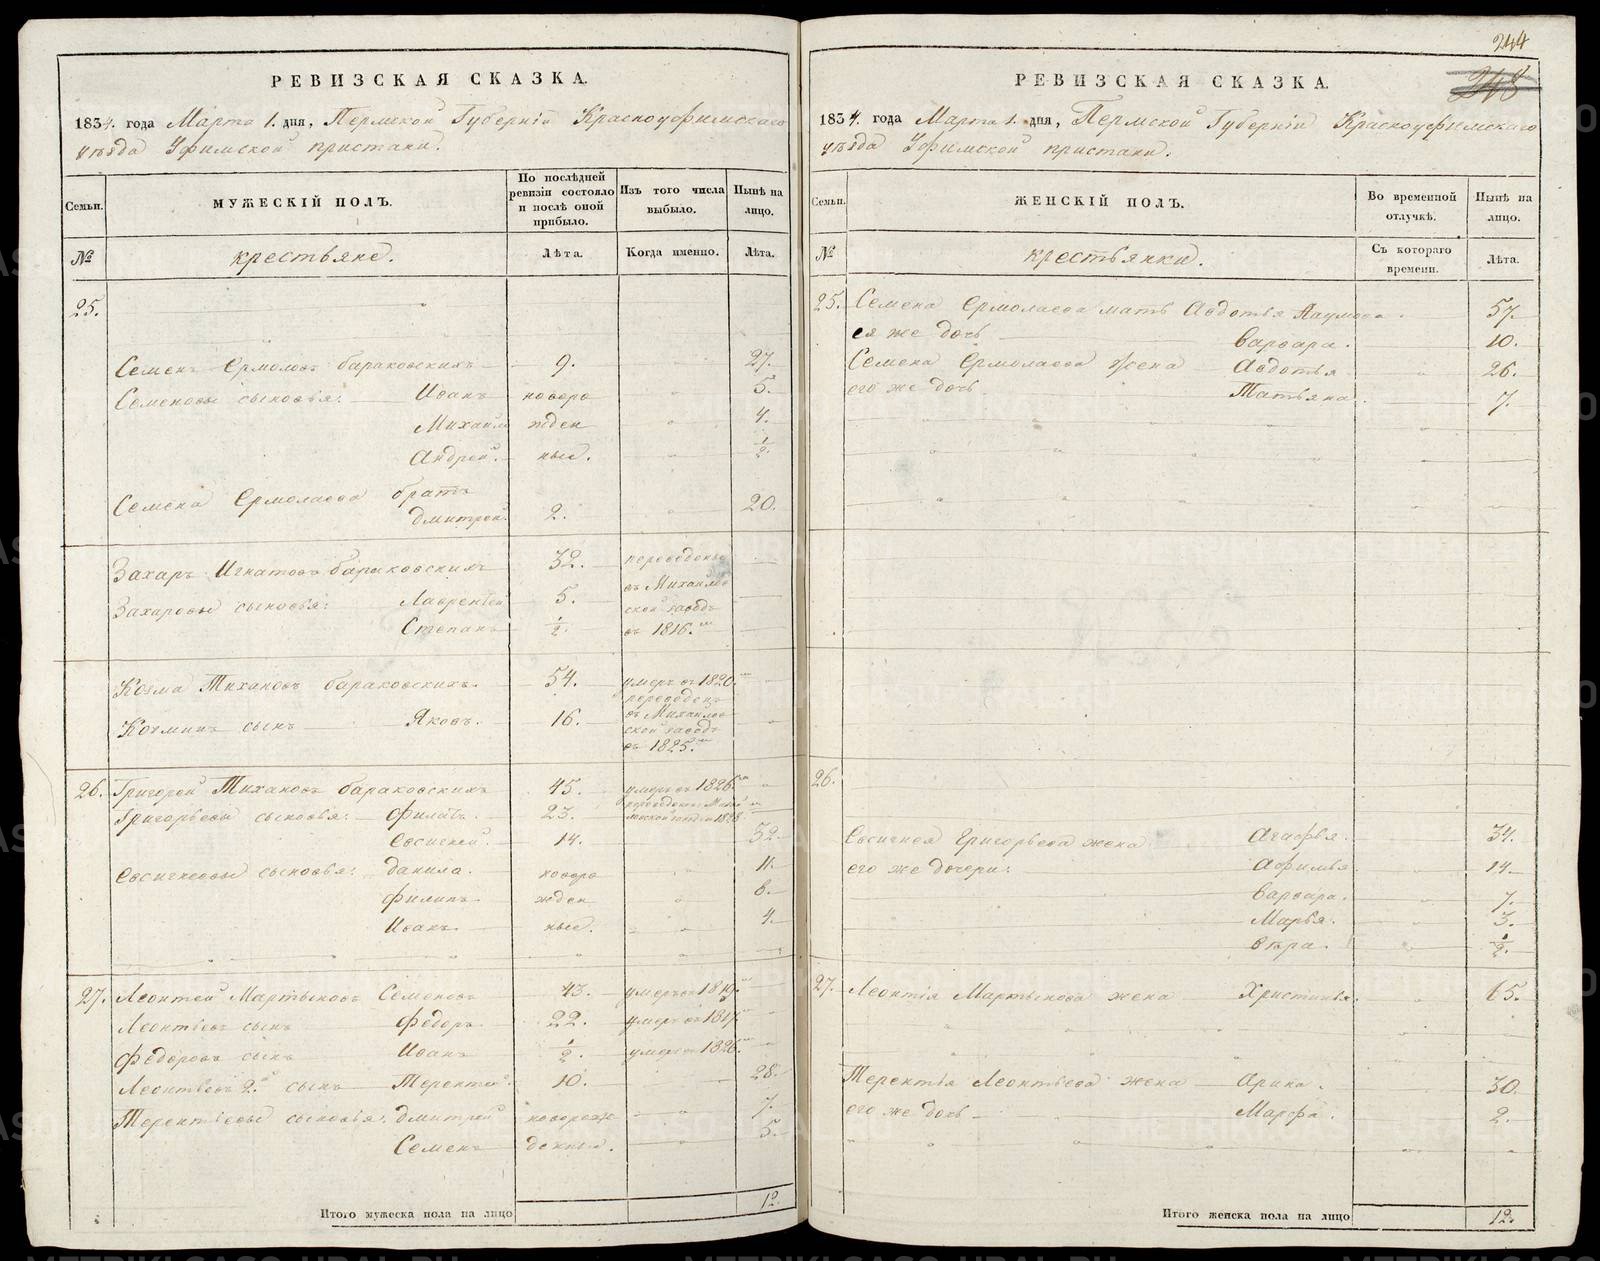 РЕВИЗСКАЯ СКАЗКА.
1834. года Марта 1. дня, Пермской Губернiи Красноуфимскаго
уѣзда Уфимской пристани.
Семьи.
МУЖЕСКIЙ ПОЛЪ.
По послѣдней ревизiи состояло и послѣ оной прибыло.
Изъ того числа выбыло.
Нынѣ на лицо.
№
крестьяне.
Лѣта.
Когда именно.
Лѣта.
25.
Семенъ Ермоловъ бараковскихъ 9. 27.
Семеновы сыновья: Иванъ новоро 5.
Михайло жден 4.
Андрей. ные. 1/2.
Семена Ермолаева братъ
Дмитрей. 2. 20.
Захаръ Игнатовъ бараковскихъ 32. переведены
Захаровы сыновья: Лаврентей 5. въ Михайлов
ской заводъ
Степанъ 1/2. въ 1816.
Козма Тихановъ бараковскихъ. 54. умеръ въ 1820.
переведенъ
Кочминъ сынъ Яковъ. 16. въ Михайлов
ской заводъ
въ 1825.
26. Григорей Тихановъ бараковскихъ 45. умеръ въ 1826.
Григорьевы сыновья: Филатъ. 23. 1828
Евсигней. 14. 32.
Евсигнеевы сыновья: данила. новоро 11.
Филипъ. жден 6.
Иванъ. ные. 4.
27. Леонтей Мартыновъ Семеновъ 43. умеръ въ 1819.
Леонтьевъ сынъ Федоръ 22. умеръ въ 1817.
Федоровъ сынъ Иванъ 1/2. умеръ въ 1826.
Леонтьевъ 2й сынъ Терентей. 10. 28.
Терентьевы сыновья: дмитрей новорож 7.
Семенъ денные. 5.
Итого мужеска пола на лицо 12.
244
248
РЕВИЗСКАЯ СКАЗКА.
1834. года Марта 1. дня, Пермской Губернiи Красноуфимскаго
уѣзда Уфимской пристани.
Семьи.
ЖЕНСКIЙ ПОЛЪ.
Во временной отлучкѣ.
Нынѣ на лицо.
№
крестьянки.
Съ котораго времени.
Лѣта.
25. Семена Ермолаева мать Авдотья Наумова. 57.
ея же дочь Варвара. 10.
Семена Ермолаева жена Авдотья 26.
его же дочь Татьяна. 7.
26.
Евсигнея Григорьева жена Агафья. 34.
его же дочери: Афимья 14.
Варвара. 7.
Марья. 3.
Вѣра. 1/2.
27. Леонтiя Мартынова жена Христинья. 65.
Терентiя Леонтьева жена Арина. 30.
его же дочь Марфа. 2.
Итого женска пола на лицо 12.